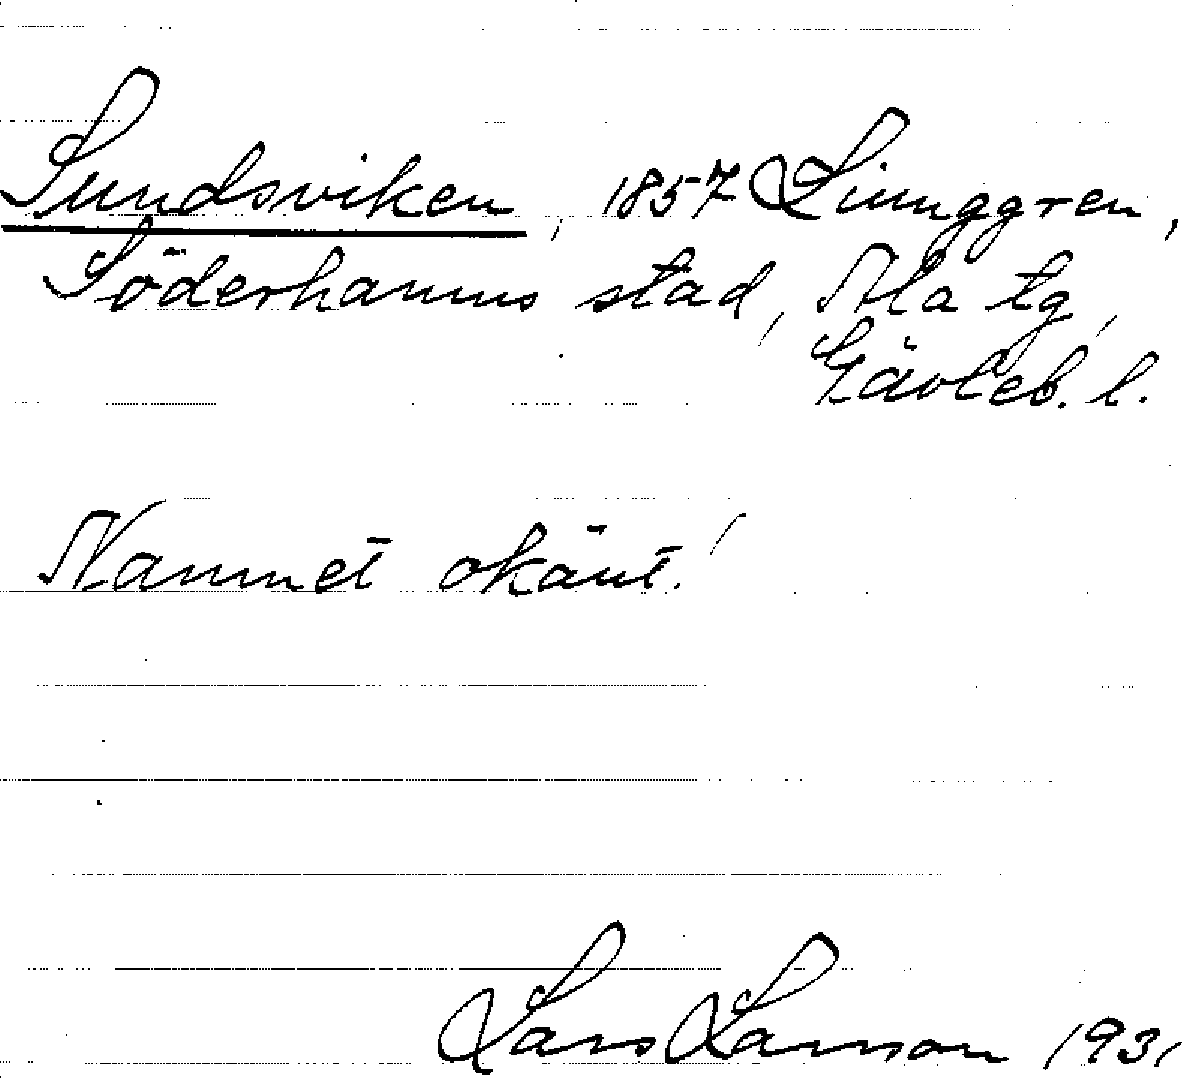 Sundsviken, 1857 Ljunggren,
Söderhamns stad, Ala tg,
Gävleb. l.
Namnet okänt!
Lars Larsson 1931